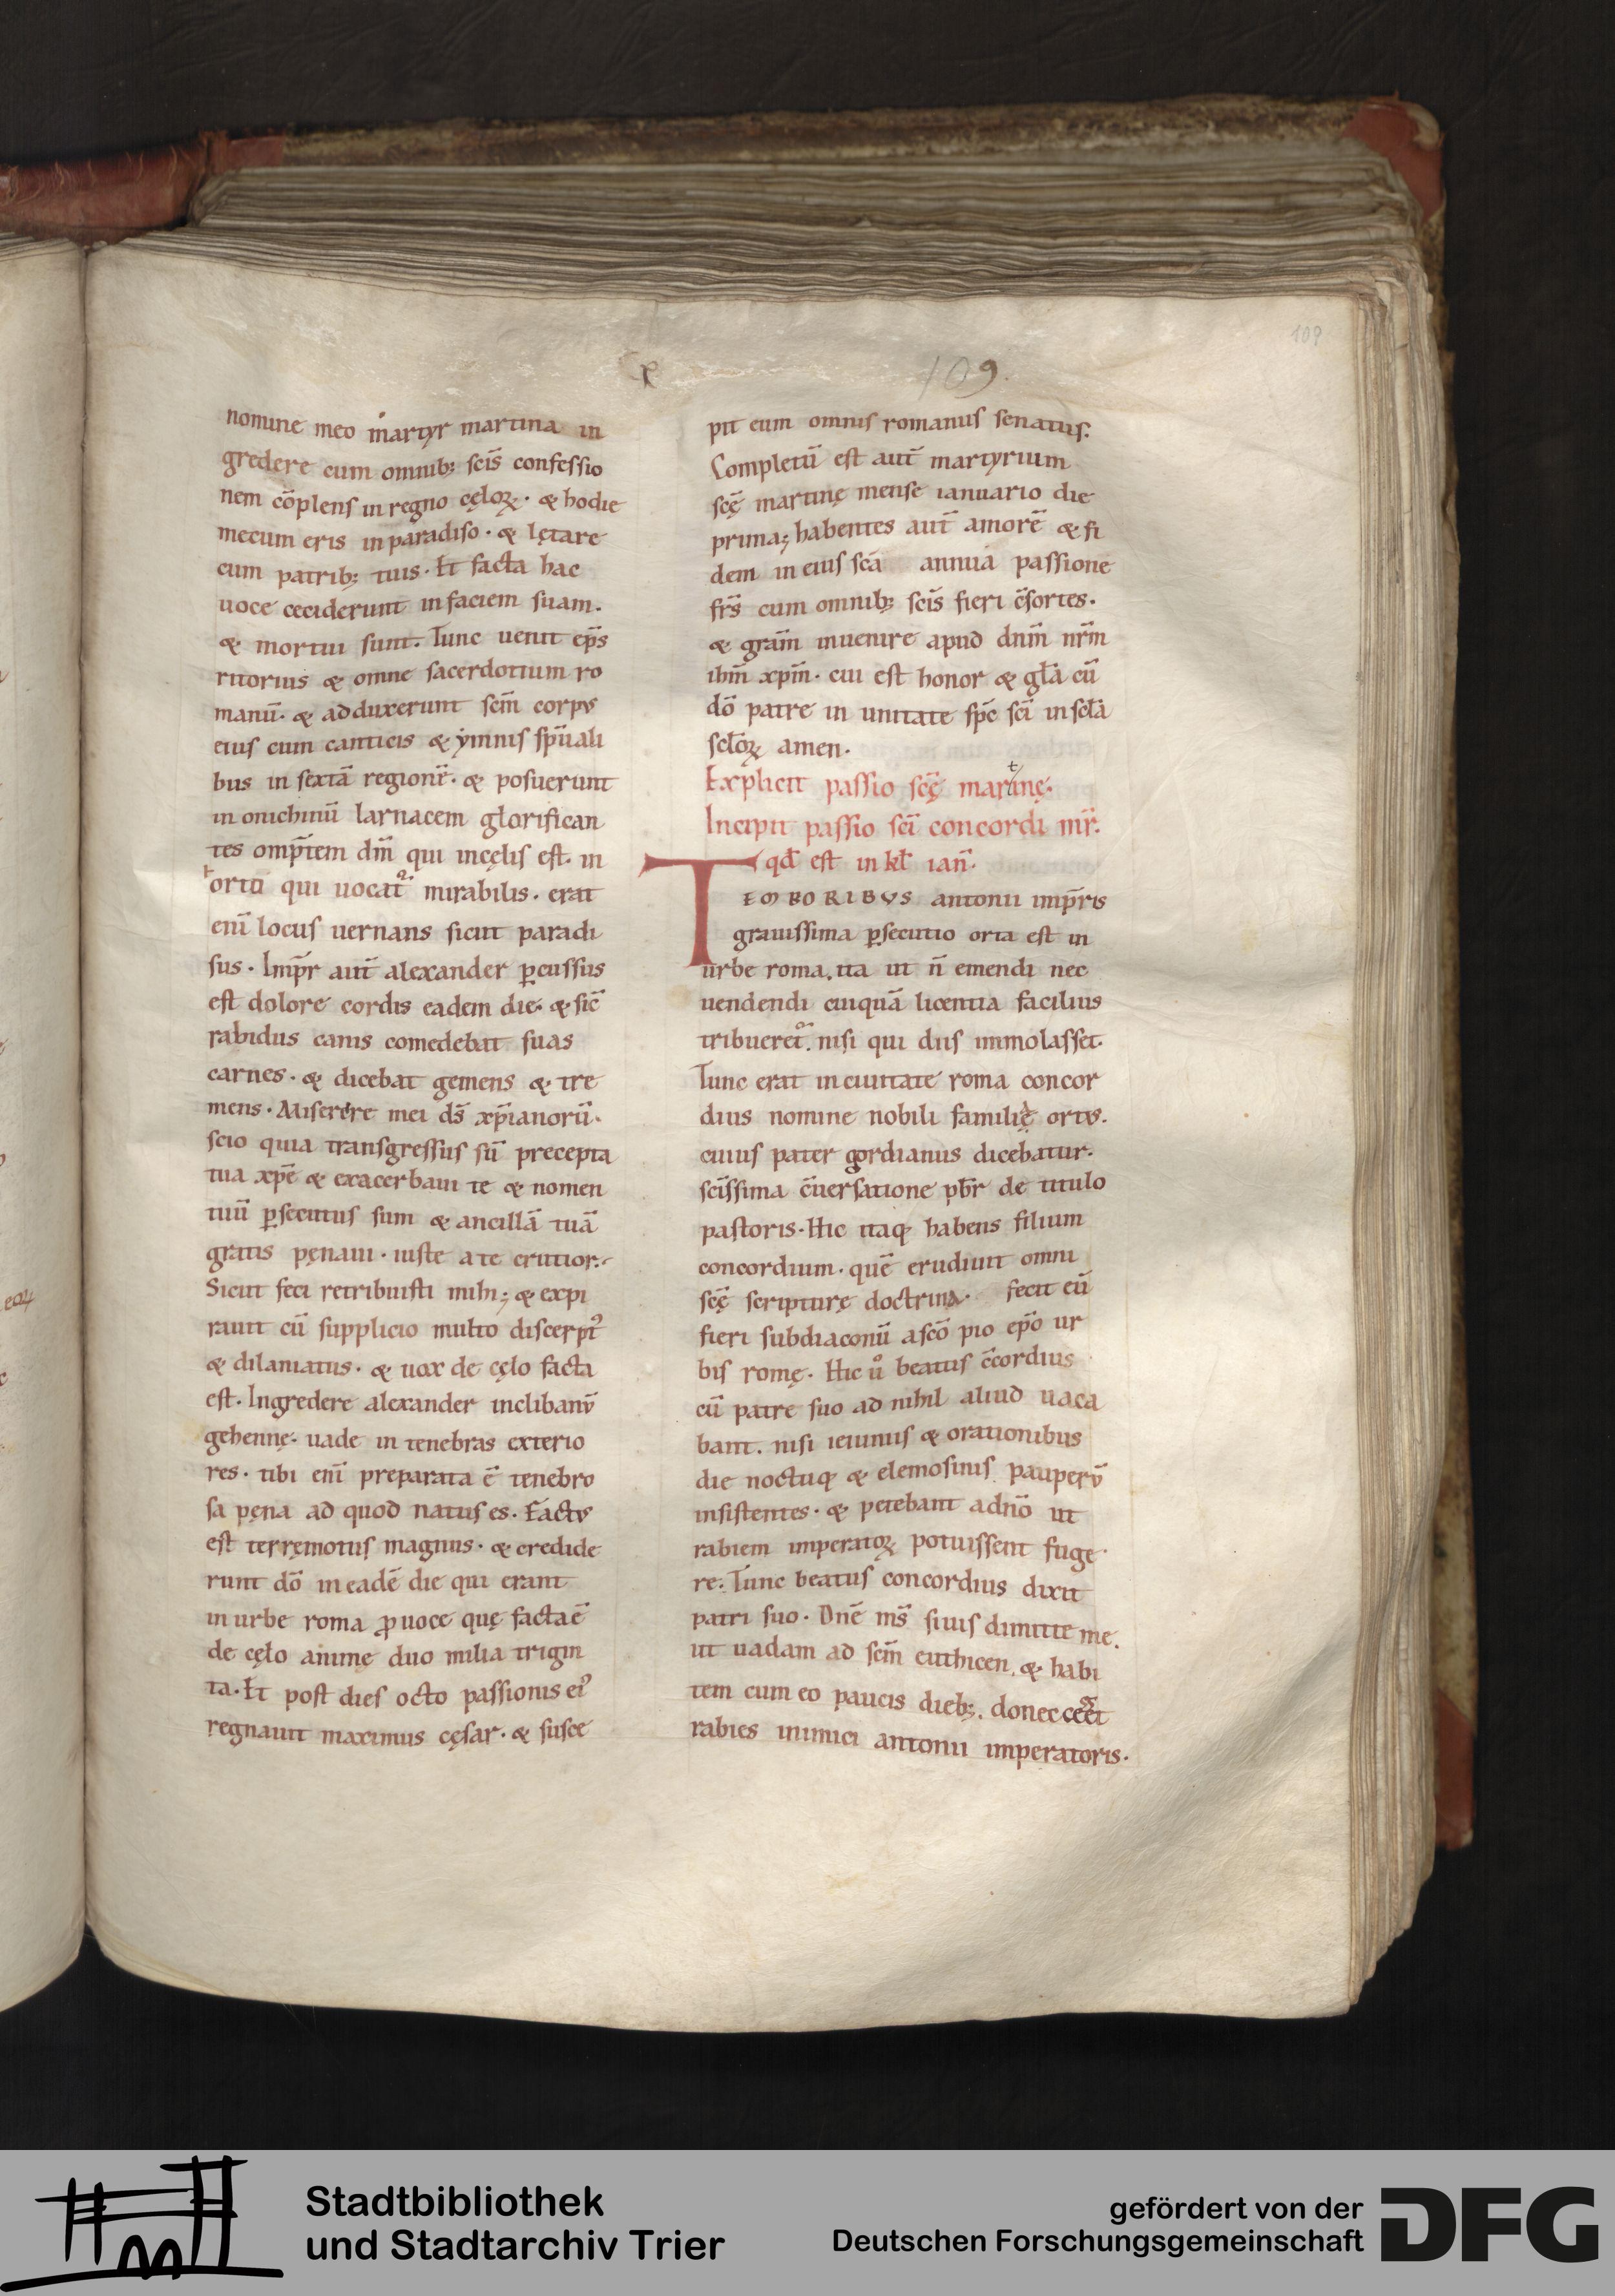 109
x 109.
nomine meo martyr martina in
gredere cum omnib; scīs confessio
nem cōplens in regno cęloꝝ· & hodie
mecum eris in paradiso· & lętare
cum patrib; tuis· Et facta hac
uoce ceciderunt in faciem suam.
& mortui sunt. Tunc uenit ep̄s
ritorius & omne sacerdotium ro
manū· & adduxerunt scm̄ corpus
eius cum canticis & ymnis sp̄uali
bus in sextā regionē· & posuerunt
in onichinū larnacem glorifican
tes omp̄tem dm̄ qui in cęlis est· in
ortū qui uocat᷑ mirabilis· erat
enī locus uernans sicut paradi
sus· Imp̄r aut̄ alexander ꝑcussus
est dolore cordis eadem die· & sic̄
rabidus canis comedebat suas
carnes· & dicebat gemens & tre
mens· Miserere mei ds̄ xp̄ianorū·
scio quia transgressus sū precepta
tua xp̄e & exacerbaui te & nomen
tuū ꝑsecutus sum & ancillā tuā
gratis pęnaui· iuste a te crutior·
Sicut feci retribuisti mihi; & expi
rauit cū supplicio multo discerpt᷒
& dilaniatus· & uox de cęlo facta
est· Ingredere alexander in clibanū
gehennę· uade in tenebras exterio
res· tibi enī preparata ē tenebro
sa pęna ad quod natus es· Factus
est terręmotus magnus· & credide
runt dō in eadē die qui erant
in urbe roma ꝓ uoce quę facta ē
de cęlo animę duo milia trigin
ta· Et post dies octo passionis ei᷒
regnauit maximus cęsar· & susce
pit eum omnis romanus senatus.
Completū est aut̄ martyrium
scę̄ martinę mense ianuario die
prima; habentes aut̄ amorē & fi
dem in eius scā annua passione
frs̄ cum omnib; scīs fieri c̄sortes·
& gram̄ inuenire apud dnm̄ nrm̄
ihm̄ xpm̄· cui est honor & gl̄a cū
dō patre in unitate sp̄c sci̅ in scl̄a
scl̄oꝝ amen·
Explicit passio scę̄ martinę·
Incipit passio sci̅ concordi mr̄.
qd̄ est in kl̄ ian̄·
TEMPORIBUS antonii imp̄ris
grauissima ꝑsecutio orta est in
urbe roma, ita ut n̄ emendi nec
uendendi cuiquā licentia facilius
tribueret᷑. nisi qui diis immolasset·
Tunc erat in ciuitate roma concor
dius nomine nobili familię ortus.
cuius pater gordianus dicebatur·
scīssima c̄uersatione pb̄r de titulo
pastoris· Hic itaq; habens filium
concordium· quē erudiuit omni
scę̄ scripturę doctrina· fecit eū
fieri subdiaconū a scō pio ep̄o ur
bis romę· Hic ů beatus c̄cordius
cū patre suo ad nihil aliud uaca
bant. nisi ieiuniis & orationibus
die noctuq; & elemosinis pauperū
insistentes· & petebant a dn̄o ut
rabiem imperatoꝝ potuissent fuge
re· Tunc beatus concordius dixit
patri suo· Dn̄e ms̄ si uis dimitte me.
ut uadam ad scm̄ euthicen, & habi
tem cum eo paucis dieb;, donec cesset
rabies inimici antonii imperatoris·
Stadtbibliothek
und Stadtarchiv Trier
gefördert von der
Deutschen Forschungsgemeinschaft
DFG